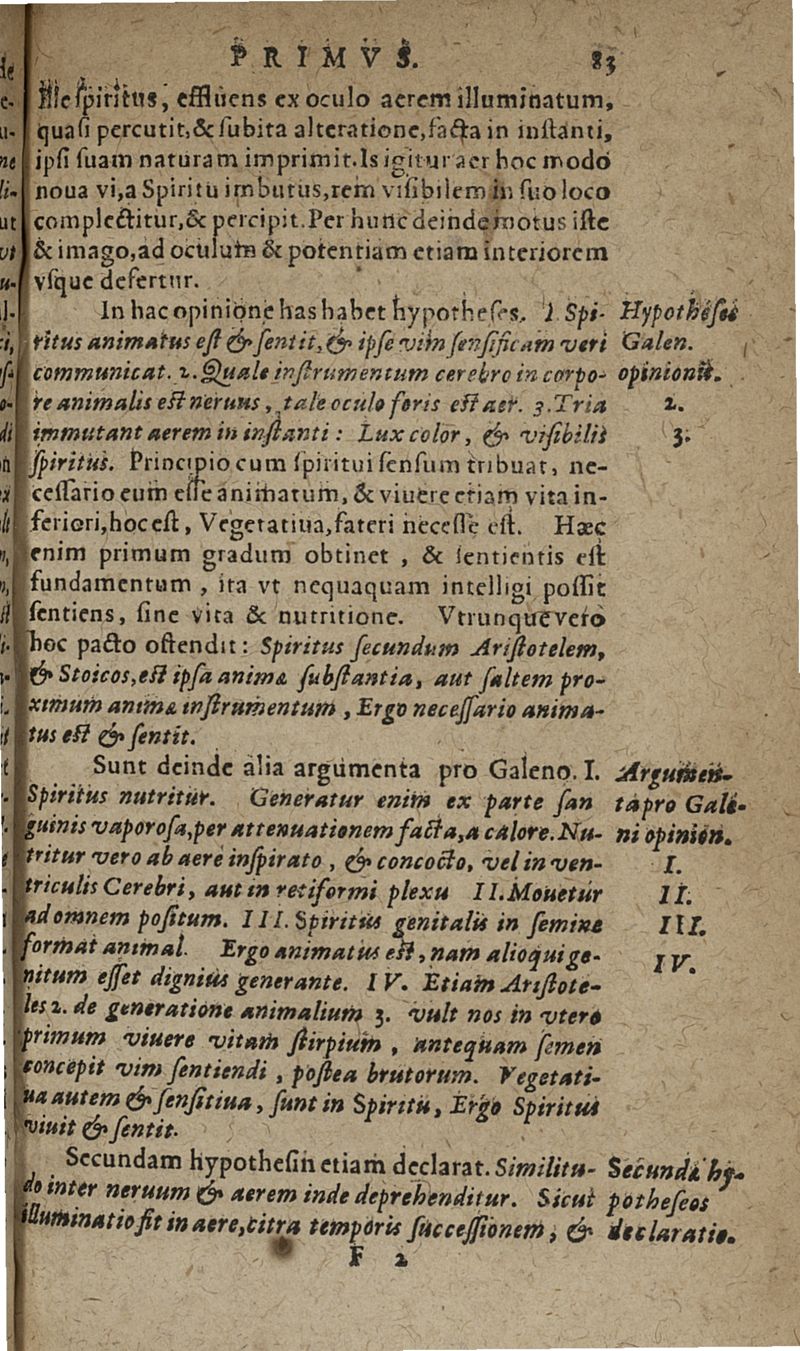 PRIMVS. 83
Ille spiritus, effluens ex oculo aerem illuminatum,
quasi percutit, & subita alteratione, facta in instanti,
ipsi suam naturam imprimit. Is igitur aer hoc modo
noua vi, a Spiritu imbutus, rem visibilem in suo loco
complectitur, & percipit. Per hunc deinde motus iste
& imago, ad oculum & potentiam etiam interiorem
vsque defertur.
In hac opinione has habet hypotheses. 1 Spi-
ritus animatus est & sentit, & ipse vim sensificam veri
communicat. 2. Quale instrumentum cerebro in corpo-
re animalis est neruus, tale oculo foris est aer. 3. Tria
immutant aerem in instanti: Lux color, & visibilis
spiritus. Principio cum spiritui sensum tribuat, ne-
cessario eum esse animatum, & viuere etiam vita in-
feriori, hoc est, Vegetatiua, fateri necesse est. Hæc
enim primum gradum obtinet, & sentientis est
fundamentum, ita vt nequaquam intelligi possit
sentiens, sine vita & nutritione. Vtrunque vero
hoc pacto ostendit: Spiritus secundum Aristotelem,
& Stoicos, est ipsa animæ substantia, aut saltem pro-
ximum animæ instrumentum, Ergo necessario anima-
tus est & sentit.
Sunt deinde alia argumenta pro Galeno. I.
Spiritus nutritur. Generatur enim ex parte san
guinis vaporosa, per attenuationem facta, a calore. Nu-
tritur vero ab aere inspirato, & concocto, vel in ven-
triculis Cerebri, aut in retiformi plexu II. Mouetur
ad omnem positum. III. Spiritus genitalis in semine
format animal. Ergo animatus est, nam alioqui ge-
nitum esset dignius generante. IV. Etiam Aristote-
les 2. de generatione animalium 3. vult nos in vtero
primum viuere vitam stirpium, antequam semen
concepit vim sentiendi, postea brutorum. Vegetati-
ua autem & sensitiua, sunt in Spiritu, Ergo Spiritus
viuit & sentit.
Secundam hypothesin etiam declarat. Similitu-
do inter neruum & aerem inde deprehenditur. Sicut
illuminatio fit in aere, citra temporis successionem, &
F 2
Hypotheses
Galen.
opinionis.
2.
3.
Argumen-
ta pro Gale-
ni opinion.
I.
II.
III.
IV.
Secundæ hy-
potheseos
declaratio.